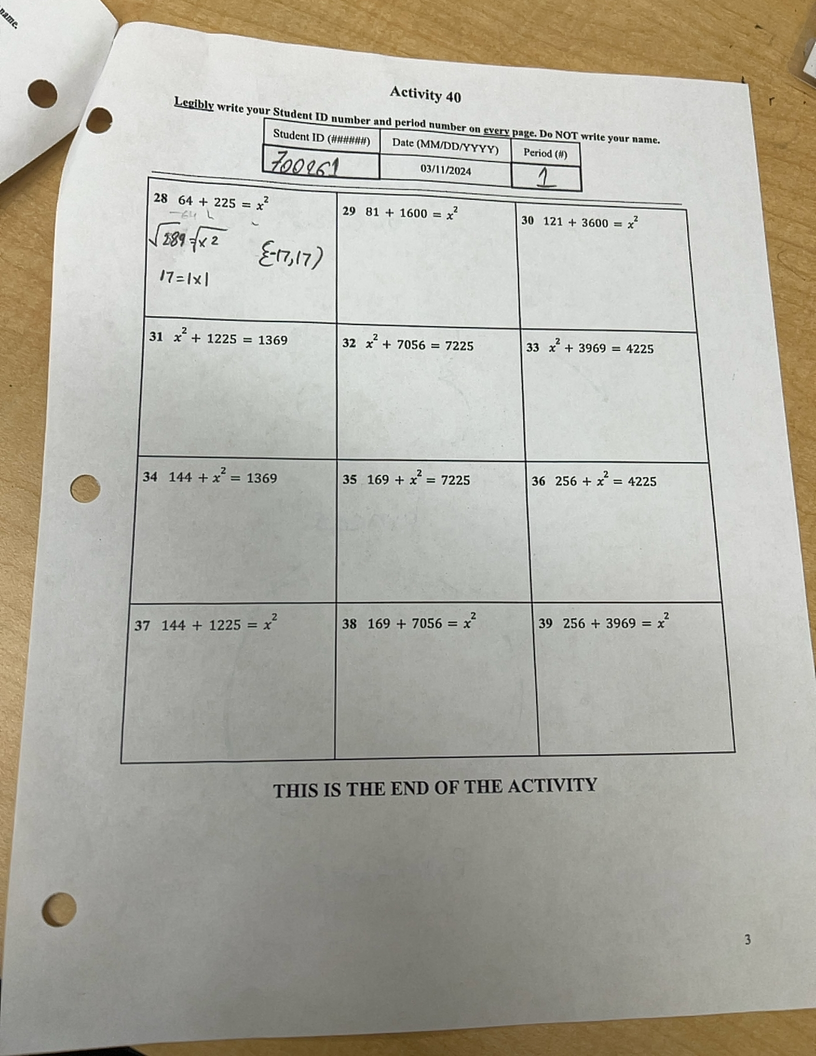 name.
Activity 40
Legibly write your Student ID number and period number on every page. Do NOT write your name.
Student ID (######) Date (MM/DD/YYYY) Period (#)
700861 03/11/2024 1
28 64 + 225 = x²
√289 = √x²
{-17,17)
17=|x|
29 81 + 1600 = x²
30 121 + 3600 = x²
31 x² + 1225 = 1369
32 x² + 7056 = 7225
33 x² + 3969 = 4225
34 144 + x² = 1369
35 169 + x² = 7225
36 256 + x² = 4225
37 144 + 1225 = x²
38 169 + 7056 = x²
39 256 + 3969 = x²
THIS IS THE END OF THE ACTIVITY
3